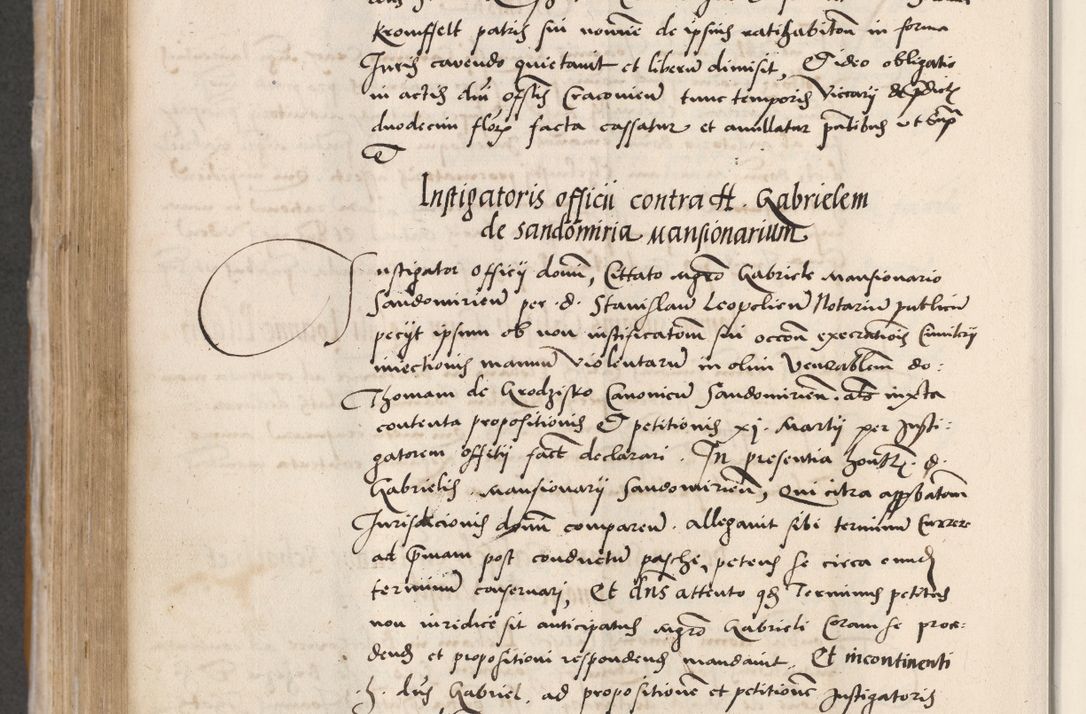 kromffelt patris sui nomine de ipsius ratihabitioñ in forma
Juris cavendo quietavit et liberũ dimisit, Et ideo obligatio
in actis dni offtis Cracovieñ tunc temporis Vicarij de
duodecim florz facta cassatur et annullatur pñtibus ut supra
Instigatoris officii contra H. Gabrielem
de sandomiria Mansionarium
Instigator officij domi, Cittato mgro Gabriele Mansionario
Sandomirieñ per .d. Stanislaũ Leopolieñ Notariũ publicũ
pecijt ipsum ob non iustificatoem sui occoñ execrationis Cimiterij
iniectionis manuũ violentarũ in olim Venerablem do:
Thomam de Grodzisko Canonicũ Sandomirieñ. als iuxta
contenta propositionis Et petitionis xj. Martij per Insti:
gatorem officij fact declarari. In presentia .d.
Gabrielis Mansionarij Sandomirieñ, Qui citra approbatoem
Jurisdicionis domi compareñ. allegavit sibi terminum Currere
ad primam post conductũ pasche, petens se circa eundẽ
terminũ conservari, Et dns attento qz Terminus petitus
non iuridice sit anticipatus mgro Gabrieli Coram se proce:
dendi et propositioni respondendi mandavit. Et incontinenti
.h. dns Gabriel. ad propositionẽ et petitionẽ Instigatoris